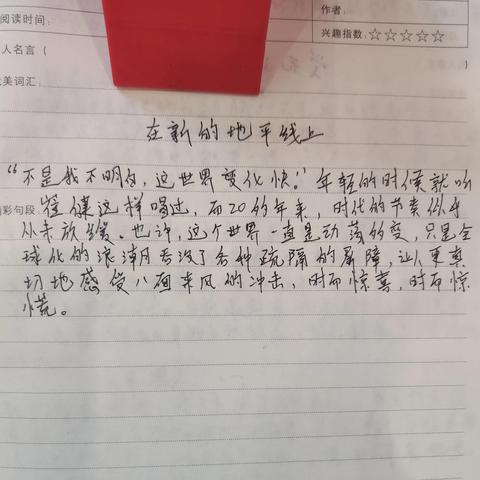 阅读时间:
作者:
兴趣指数:☆☆☆☆☆
人名言(
美词汇:
在新的地平线上
“不是我不明白,这世界变化快!”年轻的时候就听
彩句段
崔健这样唱过,而20的年来,时代的节奏似乎
从未放缓。也许,这个世界一直是动荡的变,只是全
球化的浪潮月吞没了各种疏隔的屏障,让人更真
切地感受八面来风的冲击,时而惊喜,时而惊
慌。